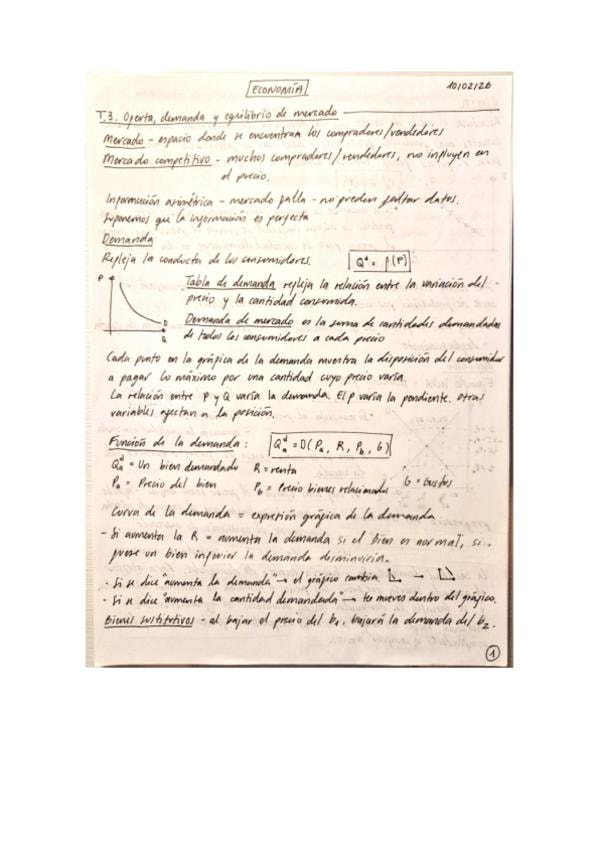 ECONOMÍA
10/02/20
T.3. Oferta, demanda y equilibrio de mercado
Mercado - espacio donde se encuentran los compradores/vendedores
Mercado competitivo - muchos compradores/vendedores, no influyen en
el precio.
Información asimétrica - mercado falla - no pueden faltar datos.
Suponemos que la información es perfecta
Demanda
Refleja la conducta de los consumidores.
Qᵈ = f(P)
P
D
Q
Tabla de demanda refleja la relación entre la variación del
precio y la cantidad consumida.
Demanda de mercado es la suma de cantidades demandadas
de todos los consumidores a cada precio
Cada punto en la gráfica de la demanda muestra la disposición del consumidor
a pagar lo máximo por una cantidad cuyo precio varía.
La relación entre P y Q varía la demanda. El P varía la pendiente. otras
variables afectan a la posición.
Función de la demanda:
Qₐᵈ = D(Pₐ, R, P_b, G)
Qₐᵈ = Un bien demandado R = renta
Pₐ = Precio del bien P_b = Precio bienes relacionados G = Gustos
Curva de la demanda = expresión gráfica de la demanda
- Si aumenta la R = aumenta la demanda si el bien es normal, si
fuese un bien inferior la demanda disminuiría.
- Si se dice "aumenta la demanda" → el gráfico cambia. →
- Si se dice "aumenta la cantidad demandada" → te mueves dentro del gráfico.
Bienes sustitutivos - al bajar el precio del b₁, bajará la demanda del b₂.
1